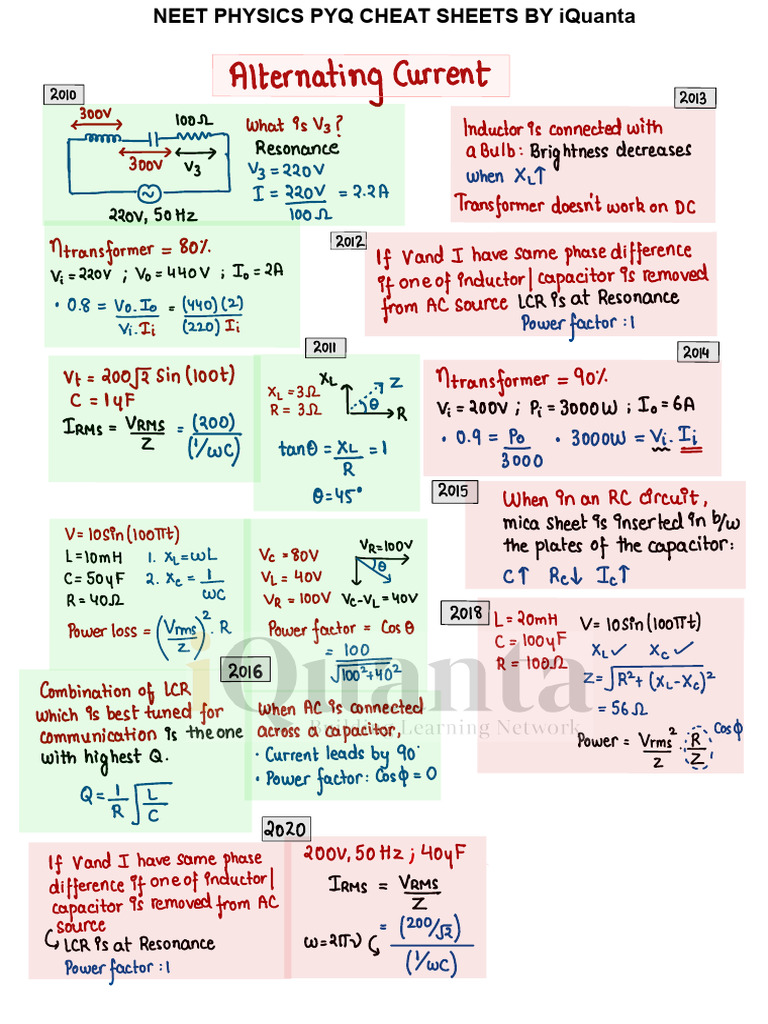 NEET PHYSICS PYQ CHEAT SHEETS BY iQuanta
Alternating Current
2010
300V
100Ω
300V
V₃
220V, 50 Hz
What is V₃?
Resonance
V₃ = 220V
I = 220V/100Ω = 2.2A
ηtransformer = 80%
Vᵢ = 220V ; V₀ = 440V ; I₀ = 2A
• 0.8 = V₀.I₀/Vᵢ.Iᵢ = (440)(2)/(220) Iᵢ
2013
Inductor is connected with
a Bulb: Brightness decreases
when X_L↑
Transformer doesn't work on DC
2012
If V and I have same phase difference
if one of inductor|capacitor is removed
from AC source LCR is at Resonance
Power factor : 1
2011
Vt = 200√2 Sin (100t)
C = 1μF
I_RMS = V_RMS/Z = (200)/(1/ωC)
X_L = 3Ω
R = 3Ω
X_L
Z
θ
R
tanθ = X_L/R = 1
θ = 45°
2014
ηtransformer = 90%
Vᵢ = 200V ; Pᵢ = 3000W ; I₀ = 6A
• 0.9 = P₀/3000 • 3000W = Vᵢ. Iᵢ
2015
When in an RC circuit,
mica sheet is inserted in b/w
the plates of the capacitor:
C↑ Rc↓ Ic↑
V = 10sin (100πt)
L = 10mH 1. X_L = ωL
C = 50μF 2. Xc = 1/ωC
R = 40Ω
Power loss = (Vrms/Z)². R
Vc = 80V
V_L = 40V
V_R = 100V
V_R = 100V
θ
Vc-V_L = 40V
Power factor = Cos θ
= 100/√100²+40²
2018
L = 20mH
C = 100μF
R = 100Ω
V = 10sin (100πt)
X_L ✓ Xc ✓
Z = √R² + (X_L-Xc)²
= 56Ω
Power = Vrms²/Z . R/Z Cosϕ
2016
Combination of LCR
which is best tuned for
communication is the one
with highest Q.
Q = 1/R √L/C
When AC is connected
across a capacitor,
• Current leads by 90°
• Power factor: Cosϕ = 0
iQuanta
Building Learning Network
2020
If V and I have same phase
difference if one of inductor|
capacitor is removed from AC
source
LCR is at Resonance
Power factor : 1
200V, 50 Hz ; 40μF
I_RMS = V_RMS/Z
ω = 2πν
= (200/√2)/(1/ωC)